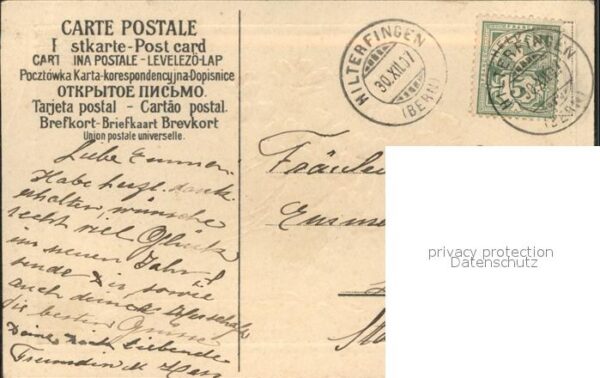 CARTE POSTALE
P stkarte-Post card
CART INA POSTALE - LEVELEZÖ-LAP
Pocztówka Karta-korespondencyjna-Dopisnice
ОТКРЫТОЕ ПИСЬМО.
Tarjeta postal - Cartão postal.
Brefkort-Briefkaart Brevkort
Union postale universelle.
Liebe Emma!
Habe herzl. dank
erhalten, wünsche
recht viel Glück
im neuen Jahr!
sende Dir sowie
auch deinen
die besten Grüsse
Deine Dich liebende
Freundin M
HILTERFINGEN
30.XII.07
(BERN)
5
HILTERFINGEN
(BERN)
Fräulein
Emm
privacy protection
Datenschutz